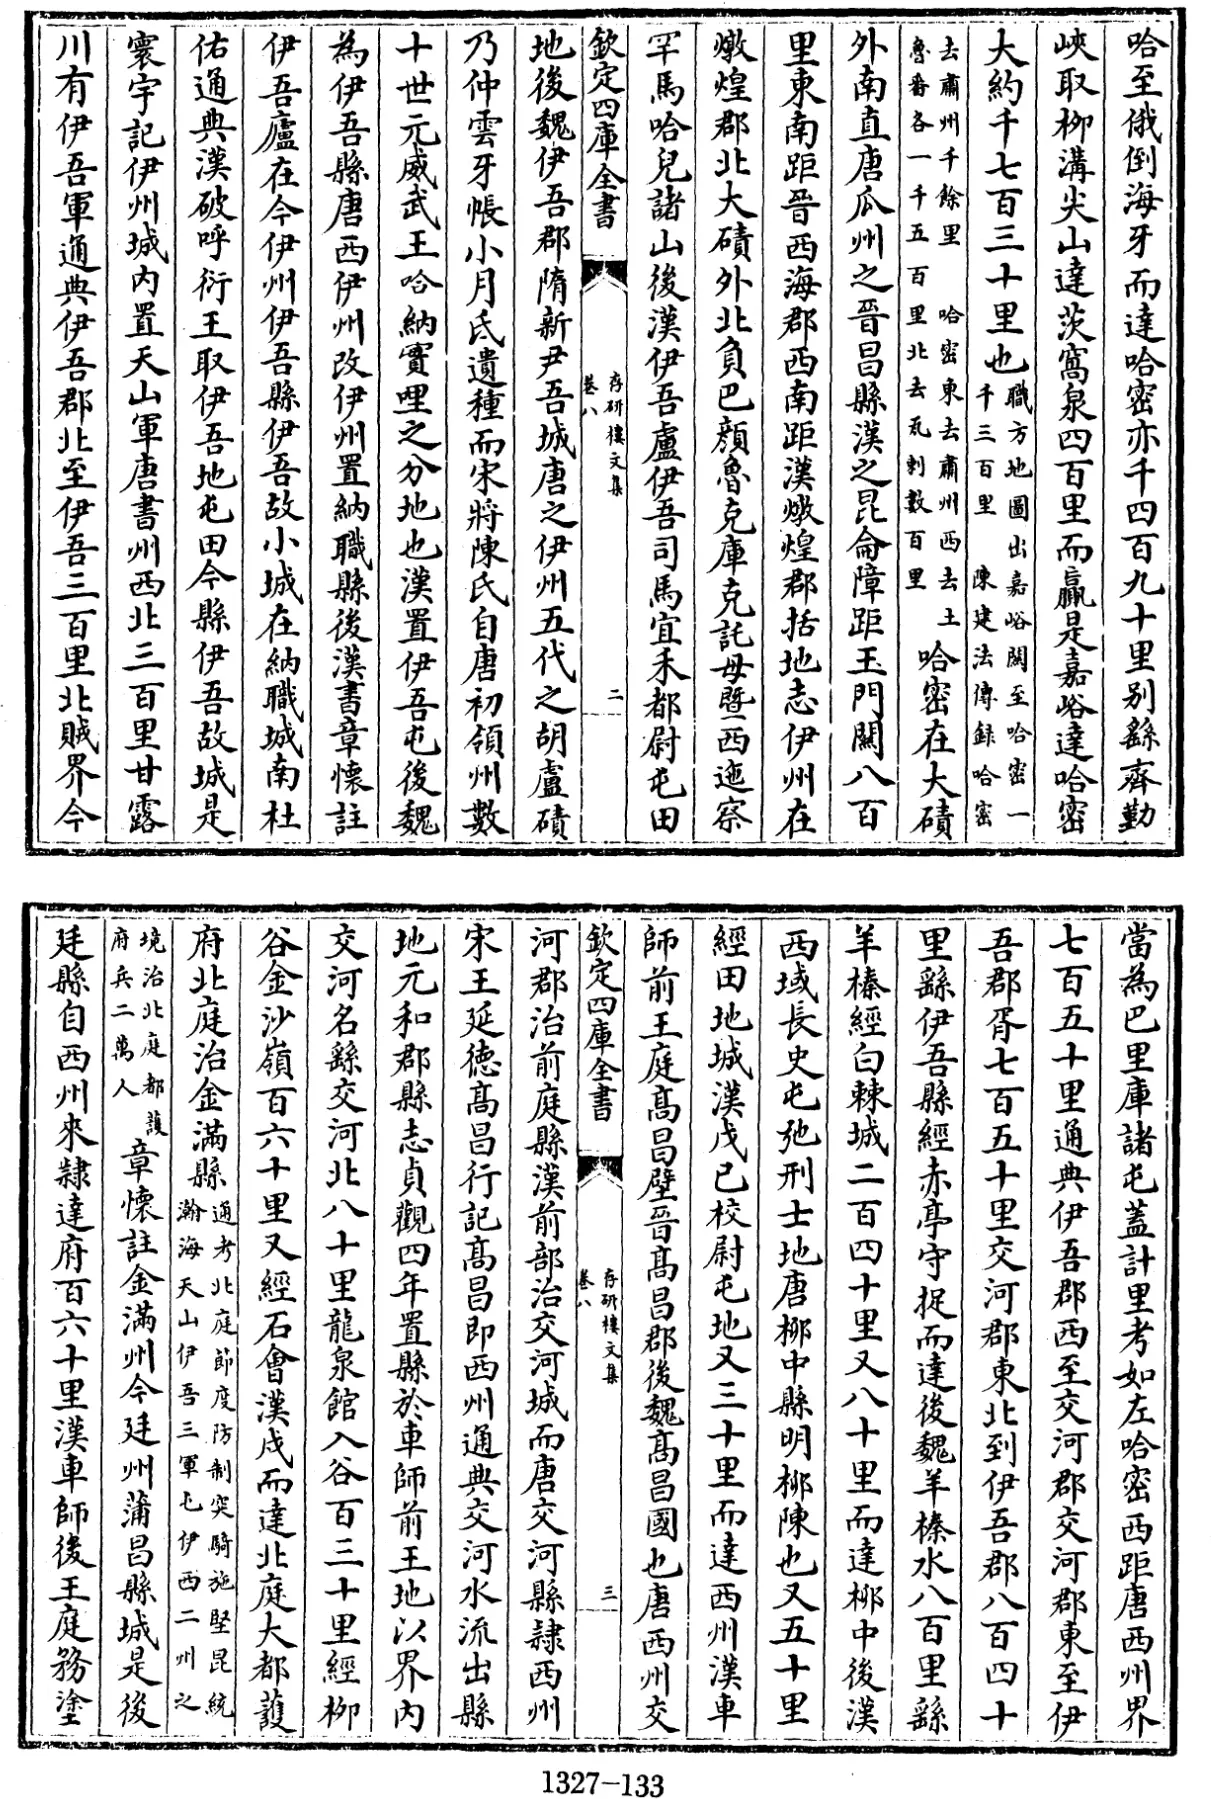 哈至俄倒海牙而達哈密亦千四百九十里别繇齊勤
峽取柳溝尖山達茨窩泉四百里而贏是嘉峪達哈密
大約千七百三十里也職方地圖出嘉峪關至哈密一千三百里陳建法傳録哈密
去肅州千餘里哈密東去肅州西去土魯番各一千五百里北去瓦剌數百里哈密在大磧
外南直唐瓜州之晉昌縣漢之昆侖障距玉門關八百
里東南距晉西海郡西南距漢燉煌郡括地志伊州在
燉煌郡北大磧外北負巴顔魯克庫克託毋暨西迤察
罕馬哈兒諸山後漢伊吾盧伊吾司馬宜禾都尉屯田
欽定四庫全書
存研樓文集
卷八
二
地後魏伊吾郡隋新尹吾城唐之伊州五代之胡盧磧
乃仲雲牙帳小月氏遺種而宋將陳氏自唐初領州數
十世元威武王哈納實哩之分地也漢置伊吾屯後魏
為伊吾縣唐西伊州改伊州置納職縣後漢書章懷註
伊吾廬在今伊州伊吾縣伊吾故小城在納職城南杜
佑通典漢破呼衍王取伊吾地屯田今縣伊吾故城是
寰宇記伊州城内置天山軍唐書州西北三百里甘露
川有伊吾軍通典伊吾郡北至伊吾三百里北賊界今
當為巴里庫諸屯蓋計里考如左哈密西距唐西州界
七百五十里通典伊吾郡西至交河郡交河郡東至伊
吾郡胥七百五十里交河郡東北到伊吾郡八百四十
里繇伊吾縣經赤亭守捉而達後魏羊榛水八百里繇
羊榛經白棘城二百四十里又八十里而達栁中後漢
西域長史屯弛刑士地唐栁中縣明栁陳也又五十里
經田地城漢戊已校尉屯地又三十里而達西州漢車
師前王庭高昌壁晉高昌郡後魏高昌國也唐西州交
欽定四庫全書
存研樓文集
卷八
三
河郡治前庭縣漢前部治交河城而唐交河縣隷西州
宋王延徳高昌行記高昌即西州通典交河水流出縣
地元和郡縣志貞觀四年置縣於車師前王地以界内
交河名繇交河北八十里龍泉館入谷百三十里經栁
谷金沙嶺百六十里又經石會漢戍而達北庭大都護
府北庭治金滿縣通考北庭節度防制突騎施堅昆統瀚海天山伊吾三軍屯伊西二州之
境治北庭都護府兵二萬人章懷註金滿州今廷州蒲昌縣城是後
廷縣自西州來隷達府百六十里漢車師後王庭務塗
1327-133